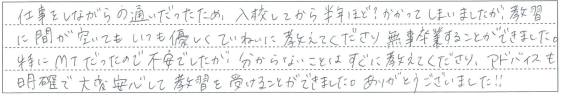 仕事をしながらの通いだったため、入校してから半年ほど?かかってしまいましたが、教習
に間が空いてもいつも優しくていねいに教えてくださり無事卒業することができました。
特にMTだったので不安でしたが分からないことはすぐに教えてくださり、アドバイスも
明確で大変安心して教習を受けることができました。ありがとうございました!!